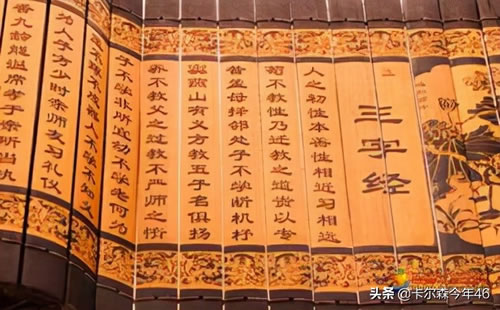 三字经
人之初性本善性相近习相远
苟不教性乃迁教之道贵以专
昔孟母择邻处子不学断机杼
窦燕山有义方教五子名俱扬
养不教父之过教不严师之惰
子不学非所宜幼不学老何为
玉不琢不成器人不学不知义
为人子方少时亲师友习礼仪
香九龄能温席孝于亲所当执
头条 @卡尔森今年46